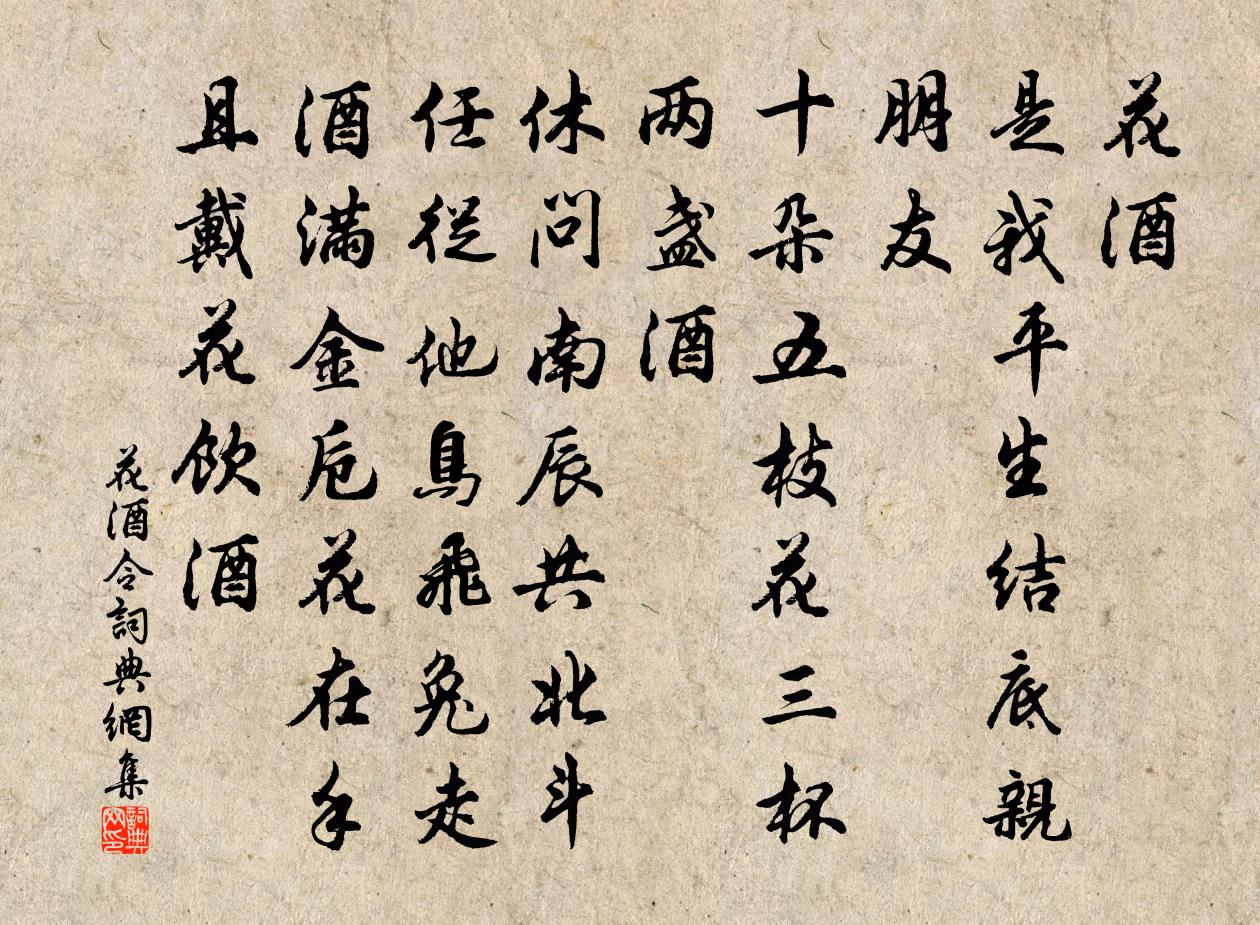 花酒
是我平生结底親
朋友
十朵五枝花三杯
两盏酒
休问南辰共北斗
任從他鳥飛兔走
酒满金卮花在手
且戴花饮酒
花酒令詞典網集
詞典網印